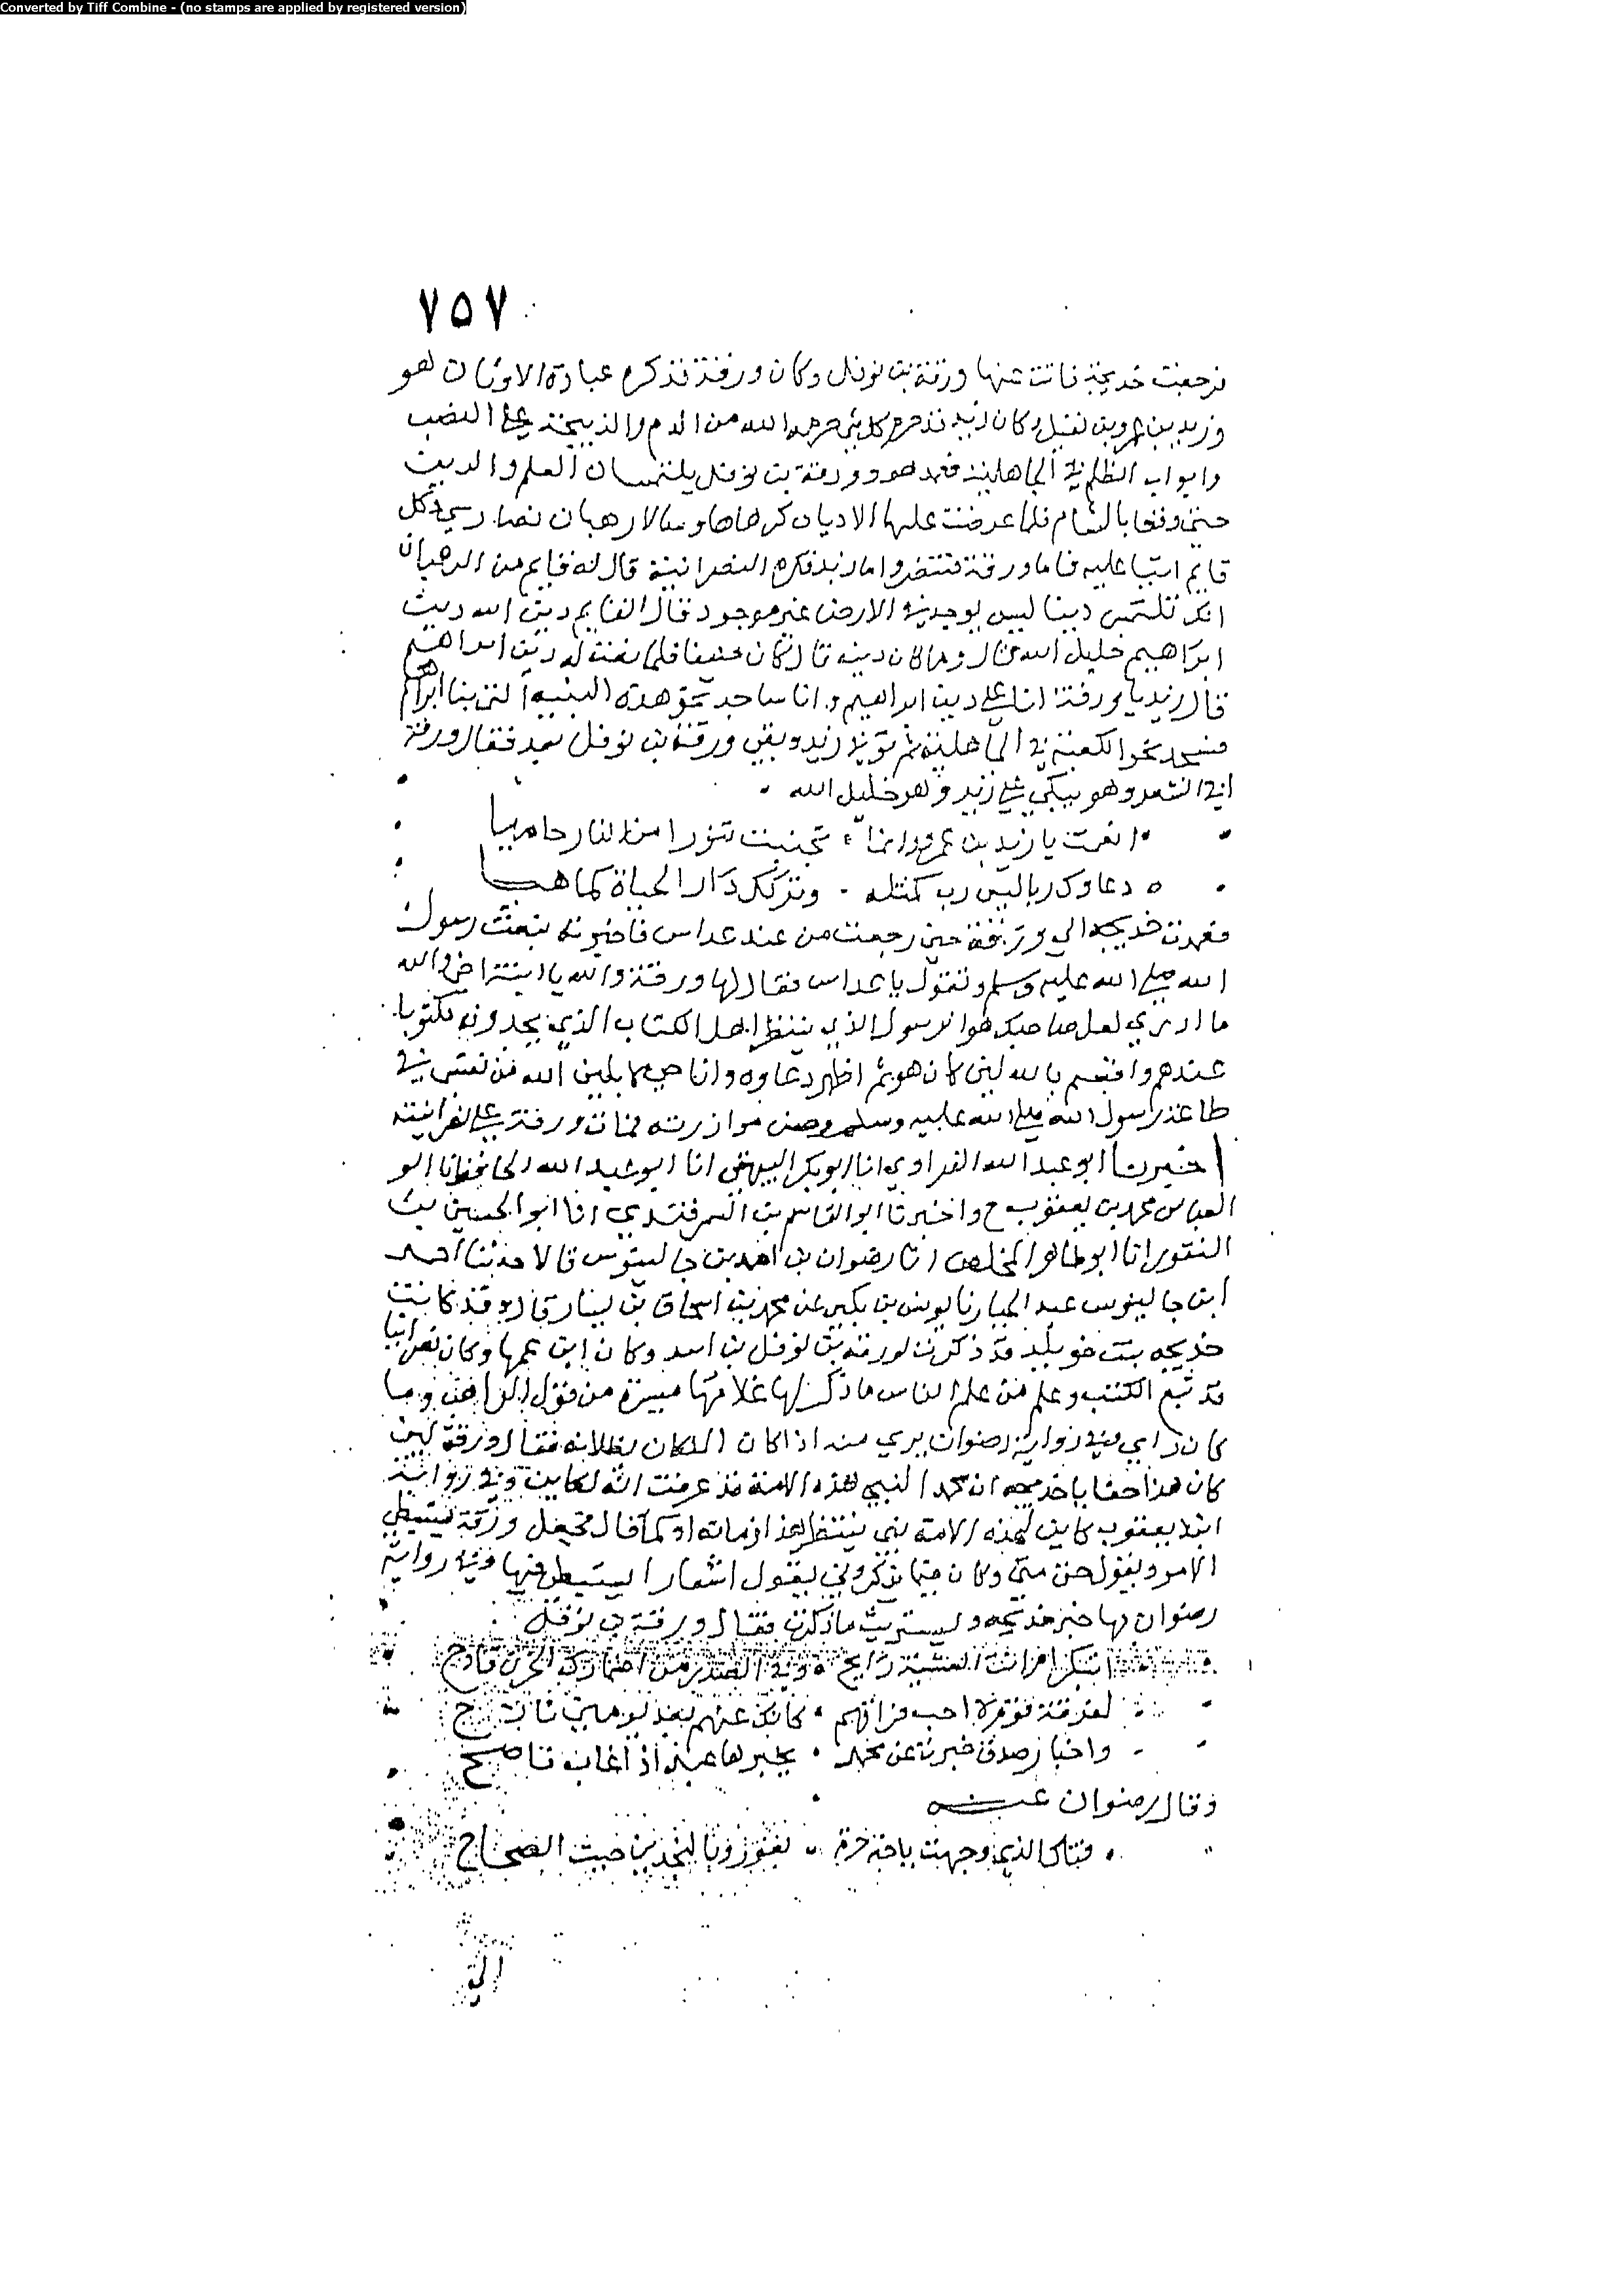 Converted by Tiff Combine - (no stamps are applied by registered version)
٧٥٧
فرجعت خديجة فاتت عنها ورقة بن نوفل وكان ورقة قد كره عبادة الاوثان هو
وزيد بن عمرو بن نفيل وكان زيد قد حرم كل شي حرمه الله من الدم والذبيحة على النصب
وابواب الظلم في الجاهلية فعمد هو وورقة بن نوفل يلتمسان العلم والدين
حتى وقعا بالشام فلما عرضت عليهما الاديان كرهاها وسالا رهبان نصارى وكل
قايم اتيا عليه فاما ورقة فتنصر واما زيد فكره النصرانية قال له قايم من الرهبان
انك تلتمس دينا ليس يوجد في الارض غير موجود فقال القايم دين الله دين
ابراهيم خليل الله قال وما كان دينه قال كان حنيفا فلما نعت له دين ابراهيم
قال زيد يا ورقة انا على دين ابراهيم وانا ساجد نحو هذه البنية التي بنا ابراهيم
فسجد نحو الكعبة في الجاهلية ثم توفي زيد وبقي ورقة بن نوفل بعد فقال ورقة
في الشعر وهو يبكي على زيد وهو خليل الله
انعمت يا زيد بن عمرو وانما تجنبت تنورا من النار حاميا
دعاوك ربا ليس رب كمثله وتركك دار الحياة كما هيا
فعمدت خديجه الى ورقة حين رجعت من عند عداس فاخبرته ببعث رسول
الله صلى الله عليه وسلم وتقول يا عداس فقال لها ورقة والله يا ابنت اخي والله
ما ادري لعل صاحبك هو الرسول الذي ينتظر اهل الكتاب الذي يجدونه مكتوبا
عندهم واقسم بالله لين كان هو ثم اظهر دعاوه وانا حي لابلين الله من نفسي في
طاعة رسول الله صلى الله عليه وسلم وحسن موازرته فمات ورقة على نصرانيته
اخبرنا ابو عبد الله الفراوي انا ابو بكر البيهقي انا ابو عبد الله الحافظ انا ابو
العباس محمد بن يعقوب ح واخبرنا ابو القاسم بن السمرقندي انا ابو الحسين بن
النقور انا ابو طاهر المخلص انا رضوان بن احمد بن جالينوس قالا حدثنا احمد
ابن جالينوس عبد الجبار نا يونس بن بكير عن محمد بن اسحاق بن يسار قال وقد كانت
خديجه بنت خويلد قد ذكرت لورقة بن نوفل بن اسد وكان ابن عمها وكان نصرانيا
قد تبع الكتب وعلم من علم الناس ما ذكر لها غلامها ميسرة من قول الراهب وما
كان راي وفي رواية رضوان يري منه اذ كان الملكان يظلانه فقال ورقة لين
كان هذا حقا يا خديجه ان محمد النبي هذه الامة قد عرفت انه لكاين وفي رواية
ابن يعقوب كاين لهذه الامة نبي ينتظر هذا زمانه او كما قال فجعل ورقة يستبطي
الامر ويقول حتى متى وكان فيما يذكرون يقول اشعارا يستبطي فيها وفي رواية
رضوان بها خبر خديجه ويستريث ما ذكرت فقال ورقة بن نوفل
اتبكر ام انت العشية رايح وفي الصدر من اضمارك الحزن قادح
لفرقة قوم لا احب فراقهم كانك عنهم بعد يومين نازح
واخبار صدق خبرت عن محمد يخبرها عنه اذا غاب ناصح
وقال رضوان عنه
فتاك الذي وجهت يا خير حرة بغور وبالنجدين حيث الصحاصح
الى